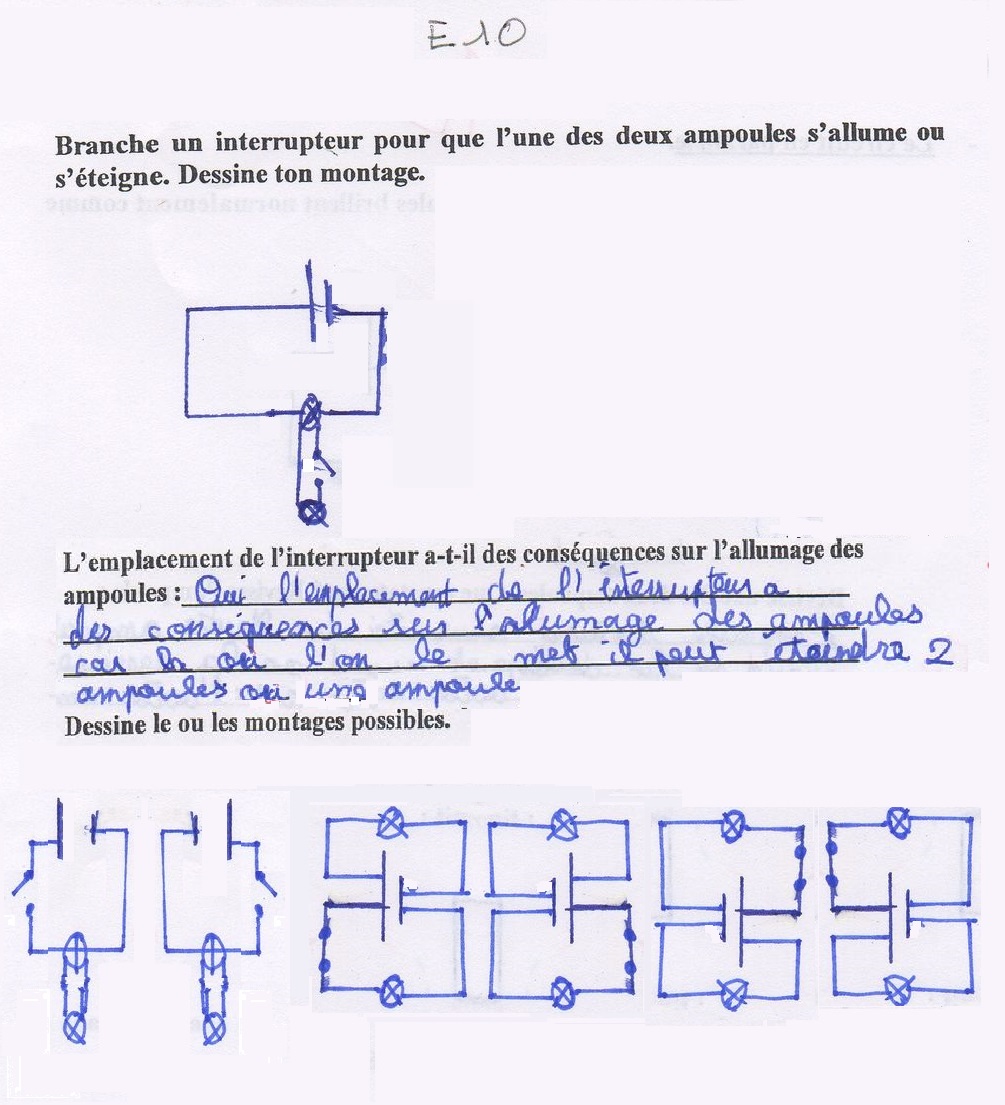 E10
Branche un interrupteur pour que l'une des deux ampoules s'allume ou
s'éteigne. Dessine ton montage.
L'emplacement de l'interrupteur a-t-il des conséquences sur l'allumage des
ampoules : Oui l'emplacement de l'interrupteur a
des conséquences sur l'alumage des ampoules
car la où l'on le met il peut éteindre 2
ampoules ou une ampoule
Dessine le ou les montages possibles.